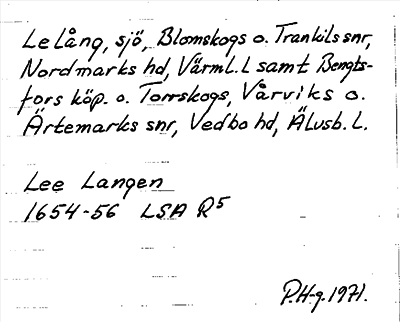 Lelång, sjö, Blomskogs o. Trankils snr,
Nordmarks hd, Värml. L samt Bengts-
fors köp. o. Torrskogs, Vårviks o.
Ärtemarks snr, Vedbo hd, Älvsb. L.
Lee Langen
1654-56 LSA R5
P.H-g. 1971.